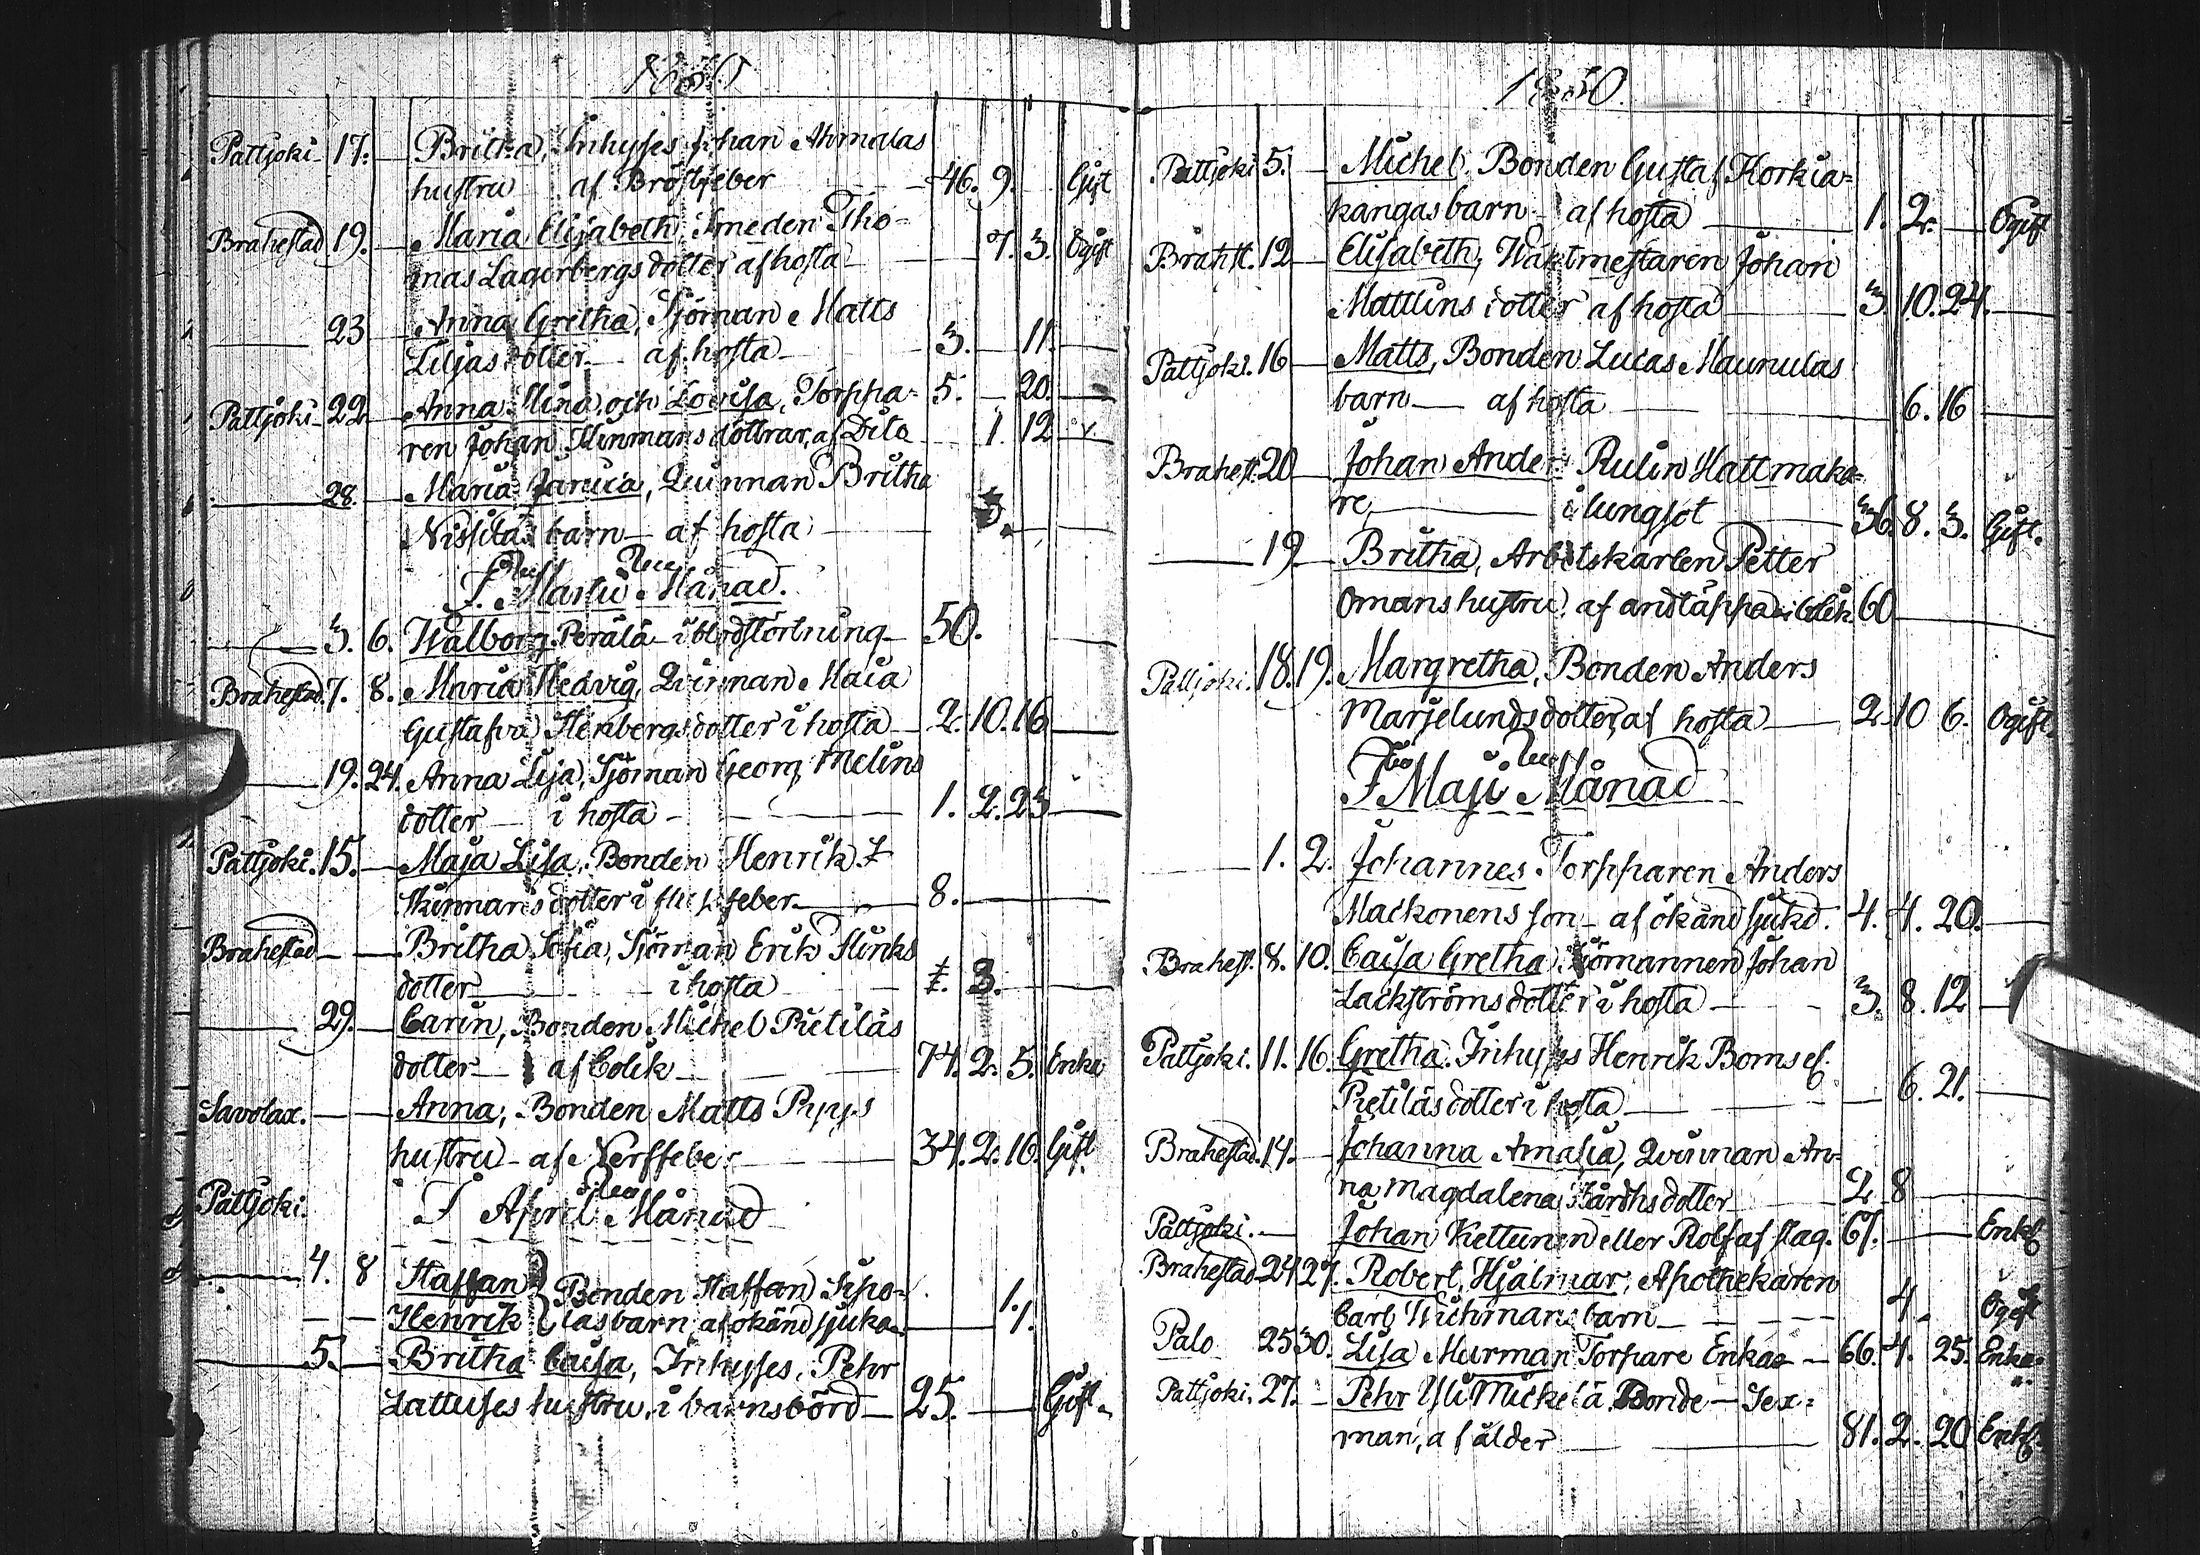 1850
Pattjoki 17. Britha, Inhyses Johan Ahmalas
hustru af Bröstfeber 46. 9. Gift
Brahestad 19. Maria Elisabeth, Smeden Tho-
mas Lagerbergs dotter af hosta 7. 3. Ogift
23 Anna Gretha, Sjöman Matts
Liljas dotter af hosta 3. 11.
Pattjoki 22 Anna Stina och Lovisa, Torppa- 5. 20.
ren Johan Skinmans döttrar, af Dito 1. 12
28. Maria, Qvinnan Britha
Nissilas barn af hosta 3.
I Martii Månad.
3. 6. Walborg Perälä i blodstörtning 50.
Brahestad. 7. 8. Maria Hedvig, Qvinnan Maia
Gustafva Stenbergs dotter i hosta 2. 10. 16
19. 24. Anna Lisa, Sjöman Georg Melins
dotter i hosta 1. 2. 23
Pattjoki. 15. Maja Lisa, Bonden Henrik
Skinmans dotter i feber 8.
Brahestad Britha Sofia, Sjöman Erik Slinks
dotter i hosta 3.
29. Carin, Bonden Michel Pietiläs
dotter af Colik 74. 2. 5. Enka
Savolax. Anna, Bonden Matts Pyyys
hustru af Nerffeber 34. 2. 16. Gift
Pattjoki. I April Månad
4. 8 Staffan } Bonden Staffan Sipo-
Henrik } las barn, af okänd sjukd. 1.
5. Britha Caisa, Inhyses, Pehr
Lattuses hustru, i barnsbörd 25. Gift.
1850.
Pattjoki 5. Michel, Bonden Gustaf Korkia-
kangas barn af hosta 1. 2. Ogift
Brahest. 12 Elisabeth, Waktmestaren Johan
Mattlins dotter af hosta 3. 10. 24.
Pattjoki. 16 Matts, Bonden Lucas Maunulas
barn af hosta 6. 16
Brahest. 20 Johan Anders Rulin Hattmaka-
re, i lungsot 36. 8. 3. Gift.
19. Britha, Arbetskarlen Petter
Omans hustru af andtäppa 60
Pattjoki. 18. 19. Margretha, Bonden Anders
Marjelunds dotter, af hosta 2. 10 6. Ogift.
I Maji Månad
1. 2. Johannes. Torpparen Anders
Mackonens son af okänd sjukd. 4. 4. 20.
Brahest. 8. 10. Caisa Gretha, Sjömannen Johan
Lackströms dotter i hosta 3. 8. 12
Pattjoki. 11. 16. Gretha, Inhyses Henrik Boms el.
Pietiläs dotter i hosta 6. 21.
Brahestad. 14. Johanna Amalia, Qvinnan An-
na Magdalena Hårdhs dotter 2 8
Pattjoki. Johan Kettunen eller Rolf af slag. 67. Enkl.
Brahestad 24 27. Robert, Hjalmar, Apothekaren
Carl Wichmans barn 4. Ogift
Palo 25 30. Lisa Murman Torpare Enka 66. 4. 25. Enka.
Pattjoki. 27. Pehr Yli Mickelä Bonde - Sex-
man, af ålder 81. 2. 20 Enkl.